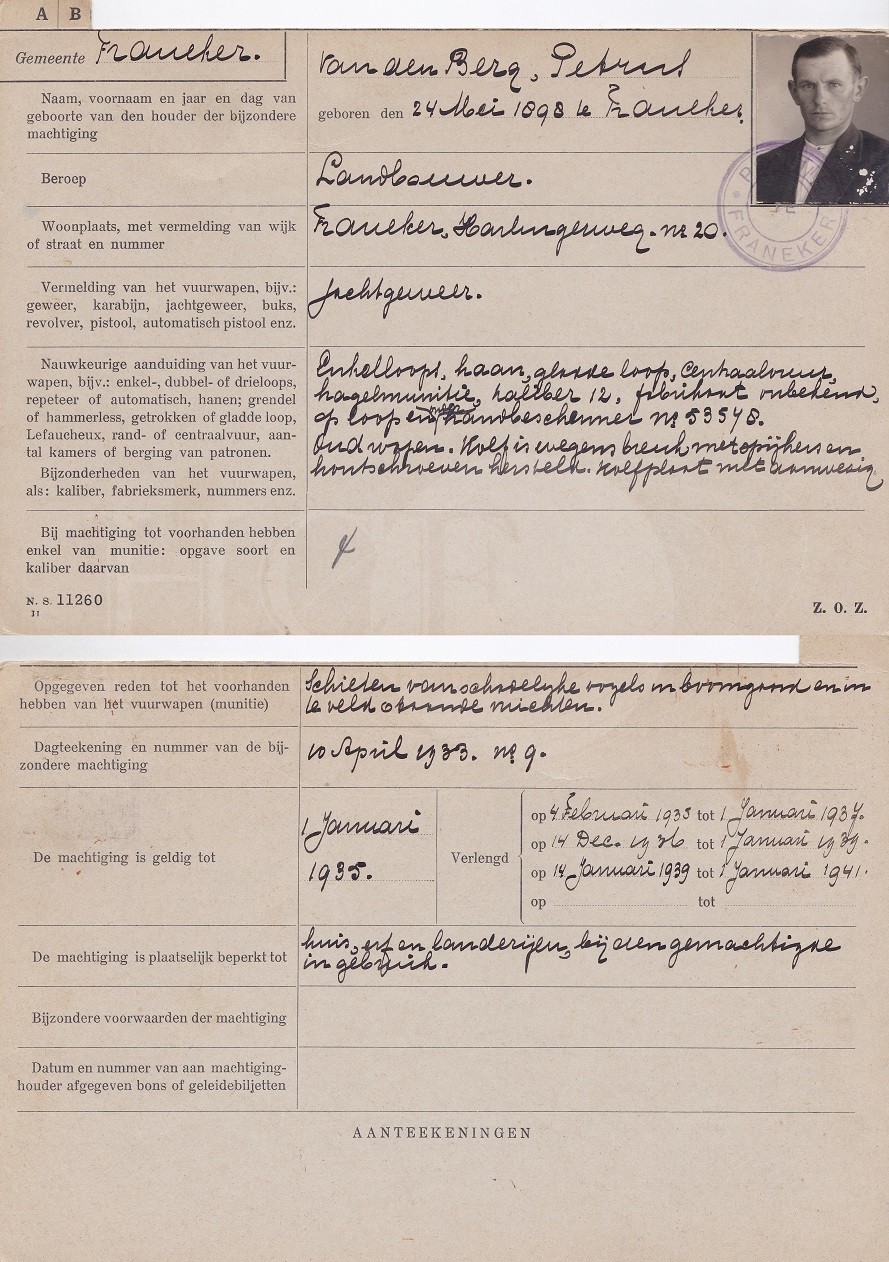 A B
Gemeente Franeker.
Naam, voornaam en jaar en dag van
geboorte van den houder der bijzondere
machtiging
van den Berg, Petrus
geboren den 24 Mei 1898 te Franeker.
Beroep
Landbouwer.
Woonplaats, met vermelding van wijk
of straat en nummer
Franeker, Harlingerweg. nr 20.
FRANEKER
Vermelding van het vuurwapen, bijv.:
geweer, karabijn, jachtgeweer, buks,
revolver, pistool, automatisch pistool enz.
Jachtgeweer.
Nauwkeurige aanduiding van het vuur-
wapen, bijv.: enkel-, dubbel- of drieloops,
repeteer of automatisch, hanen; grendel
of hammerless, getrokken of gladde loop,
Lefaucheux, rand- of centraalvuur, aan-
tal kamers of berging van patronen.
Bijzonderheden van het vuurwapen,
als: kaliber, fabrieksmerk, nummers enz.
Enkelloops, haan, gladde loop, Centraalvuur,
hagelmunitie, kaliber 12, fabrikaat onbekend,
op loop en handbeschermer nr 53578.
Oud wapen. Kolf is wegens breuk met spijkers en
houtschroeven hersteld. Kolfplaat niet aanwezig
Bij machtiging tot voorhanden hebben
enkel van munitie: opgave soort en
kaliber daarvan
N. S. 11260
Z. O. Z.
Opgegeven reden tot het voorhanden
hebben van het vuurwapen (munitie)
Schieten van schadelijke vogels in boomgaard en in
te veld staande miechten.
Dagteekening en nummer van de bij-
zondere machtiging
10 April 1933. nr 9.
De machtiging is geldig tot
1 Januari
1935.
Verlengd
op 4 Februari 1935 tot 1 Januari 1937.
op 14 Dec. 1936 tot 1 Januari 1939.
op 14 Januari 1939 tot 1 Januari 1941.
op tot
De machtiging is plaatselijk beperkt tot
huis, erf en landerijen, bij den gemachtigde
in gebruik.
Bijzondere voorwaarden der machtiging
Datum en nummer van aan machtiging-
houder afgegeven bons of geleidebiljetten
AANTEEKENINGEN